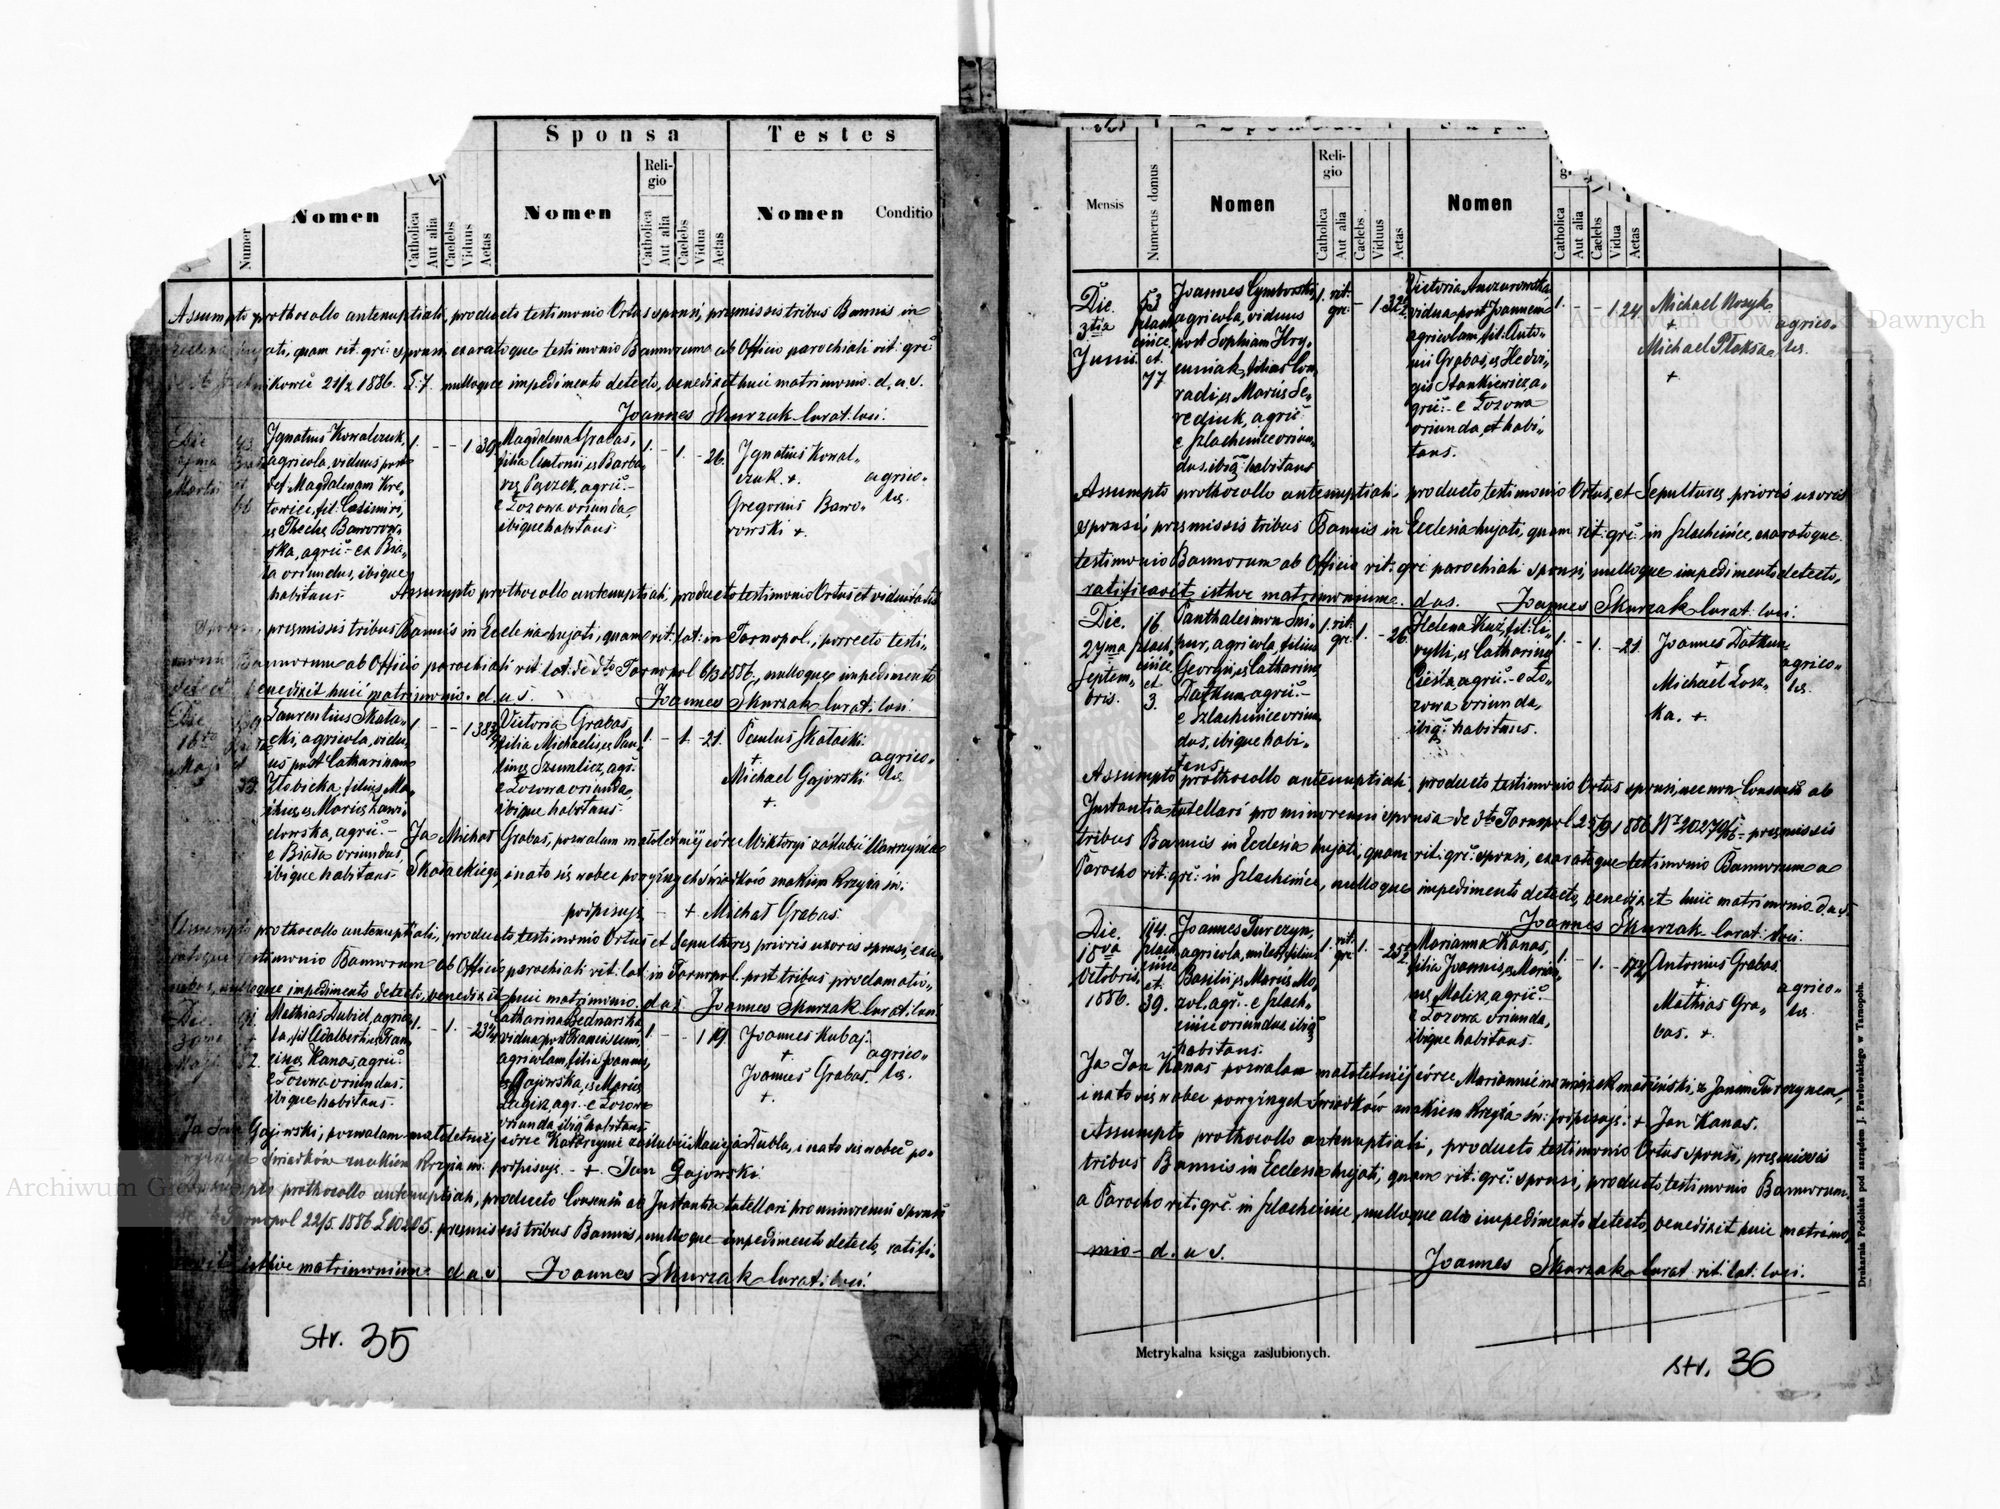 Sponsa Testes
Religio
Numer Nomen Catholica Aut alia Caelebs Viduus Aetas Nomen Catholica Aut alia Caelebs Vidua Aetas Nomen Conditio
Assumpto prothocollo antenuptiali, producto testimonio Ortus sponsi, præmissis tribus Bannis in
quam rit. gr: sponsi, exaratoque testimonio Bannorum ab Officio parochiali rit: gr:
1886. nulloque impedimento detecto, benedixit huic matrimonio. d. u. s.
Joannes Skurzak Curat. loci.
Ignatius Kowalczuk,
agricola, viduus post
def. Magdalenam Kre-
towicz, fil. Casimiri,
et Theclæ Bawrow-
ska, agric: ex Bia-
ła oriundus, ibique
habitans
1. - - 1 39
Magdalena Grabas,
filia Antonii et Barba-
ræ Pączek, agric:-
e Łozowa oriunda,
ibique habitans
1. - 1. - 26.
Ignatius Kowal-
czuk. +.
Gregorius Bawo-
rowski +.
agrico-
læ.
Assumpto prothocollo antenuptiali, producto testimonio Ortus et viduitatis
præmissis tribus Bannis in Ecclesia hujati, quam rit: lat: in Tarnopol, porrecto testi-
Bannorum ab Officio parochiali rit: lat: de dto Tarnopol 6/3 1886, nulloque impedimento
benedixit huic matrimonio. d. u. s. Joannes Skurzak Curat. loci.
Laurentius Skała-
cki, agricola, vidu-
us post Catharinam
Złobicka, filius Ma-
thiæ et Mariæ Zawi-
dowska, agric:-
e Biała oriundus,
ibique habitans
1 - - 1 38
Victoria Grabas,
filia Michaelis et Pau-
linæ Szumlicz, agr:
e Łozowa oriunda,
ibique habitans.
1. - 1. - 21.
Paulus Skałacki
+
Michael Gajowski
+.
agrico-
læ
Ja Michał Grabas, pozwalam małoletniej córce Wiktoryi zaślubić Wawrzyńca
Skałackiego, i na to się wobec przyjętych świadków znakiem Krzyża św:
podpisuję - + Michał Grabas.
Assumpto prothocollo antenuptiali, producto testimonio Ortus et Sepulturæ prioris uxoris sponsi, exa-
ratoque testimonio Bannorum ab Officio parochiali rit: lat: in Tarnopol. post tribus proclamatio-
nibus, nulloque impedimento detecto, benedixit huic matrimonio d. u. s. Joannes Skurzak Curat: loci
Mathias Dubiel, agrico-
la, fil. Adalberti et Fran-
ciscæ Kanas, agric:
e Łozowa oriundus.
ibique habitans.
1. - 1. - 23½
Catharina Bednarska
vidua post Franciscum,
agricolam, filia Joannis
Gajowska, et Mariæ
Łagisz, agr:- e Łozowa
oriunda, ibiq habitans
1. - - 1 19.
Joannes Kubaj.
+.
Joannes Grabas.
+.
agrico-
læ.
Ja Jan Gajowski, pozwalam małoletniej córce Katarzynie zaślubić Macieja Dubla, i na to się wobec po-
świadków znakiem Krzyża św. podpisuję - + Jan Gajowski.
Assumpto prothocollo antenuptiali, producto Consensu ab Instantia tutellari pro minorenni sponsa
Tarnopol 22/5. 1886 præmissis tribus Bannis, nulloque impedimento detecto, ratifi-
cavit isthoc matrimonium d. u. s. Joannes Skurzak Curat: loci.
str. 35
Mensis Numerus domus Nomen Religio Catholica Aut alia Caelebs Viduus Aetas Nomen Catholica Aut alia Caelebs Vidua Aetas
Die
3tia
Junii
53
Szlach-
cince,
et
77
Joannes Cymborski,
agricola, viduus
post Sophiam Hry-
cuniak, filius Con-
radi, et Mariæ Se-
rediuk, agric:
e Szlachcince oriun-
dus, ibiq habitans
1. rit. gr: - 1 32½
vidua post Joannem
agricolam, fil. Anto-
nii Grabas, et Hedwi-
gis Stankiewicz a-
gric:- e Łozowa
oriunda, et habi-
tans.
1. - - 1 24
Michael Mosyk
+.
Michael Płaksa
+
agrico-
læ.
Assumpto prothocollo antenuptiali, producto testimonio Ortus, et Sepulturæ prioris uxoris
sponsi, præmissis tribus Bannis in Ecclesia hujati, quam rit: gr: in Szlachcince, exaratoque
testimonio Bannorum ab Officio rit: gr: parochiali sponsi, nulloque impedimento detecto,
ratificavit isthoc matrimonium. d. u. s. Joannes Skurzak Curat: loci.
Die
27ma
Septem-
bris.
16
Szlach-
cince
et
3.
Panthaleimon Sni-
hur, agricola, filius
Georgii, et Catharinæ
Datkun agric:-
e Szlachcince oriun-
dus, ibique habi-
tans
1. rit. gr: 1. - 26
Helena Kuź, fil: Cy-
rylli, et Catharinæ
Cieśla, agric:- e Ło-
zowa oriunda,
ibiq: habitans.
1. - 1. - 21
Joannes Datkun
+
Michael Łosz-
ka. +.
agrico-
læ.
Assumpto prothocollo antenuptiali, producto testimonio Ortus sponsi, nec non Consensu ab
Instantia tutellari pro minorenni sponsa de dto Tarnopol 25/9 1886 præmissis
tribus Bannis in Ecclesia hujati, quam rit: gr: sponsi, exaratoque testimonio Bannorum a
Parocho rit: gr: in Szlachcince, nulloque impedimento detecto, benedixit huic matrimonio d. u. s.
Joannes Skurzak Curat: loci.
Die.
18va
Octobris
1886.
114.
Szlach-
cince
et.
39.
Joannes Turczyn,
agricola, miles, filius
Basilii, et Mariæ Mo-
zol, agr: e Szlach-
cince oriundus, ibiq
habitans.
1. rit. gr: 1. - 25½
Marianna Kanas,
filia Joannis, et Maria-
næ Malisz, agric:-
e Łozowa oriunda,
ibique habitans.
1. - 1. - 17½
Antonius Grabas
+
Mathias Gra-
bas. +.
agrico-
læ.
Ja Jan Kanas pozwalam małoletniej córce Mariannie na związek małżeński, z Janem Turczynem,
i na to się wobec przyjętych Świadków znakiem Krzyża św: podpisuję: + Jan Kanas.
Assumpto prothocollo antenuptiali, producto testimonio Ortus sponsi, præmissis
tribus Bannis in Ecclesia hujati, quam rit: gr: sponsi, producto testimonio Bannorum,
a Parocho rit: gr: in Szlachcince, nulloque alio impedimento detecto, benedixit huic matrimo-
nio - d. u. s. Joannes Skurzak Curat. rit: lat: loci.
Metrykalna księga zaślubionych.
str. 36
Drukarnia Podolska pod zarządem J. Pawłowskiego w Tarnopolu.
Archiwum Główne Akt Dawnych
Archiwum Główne